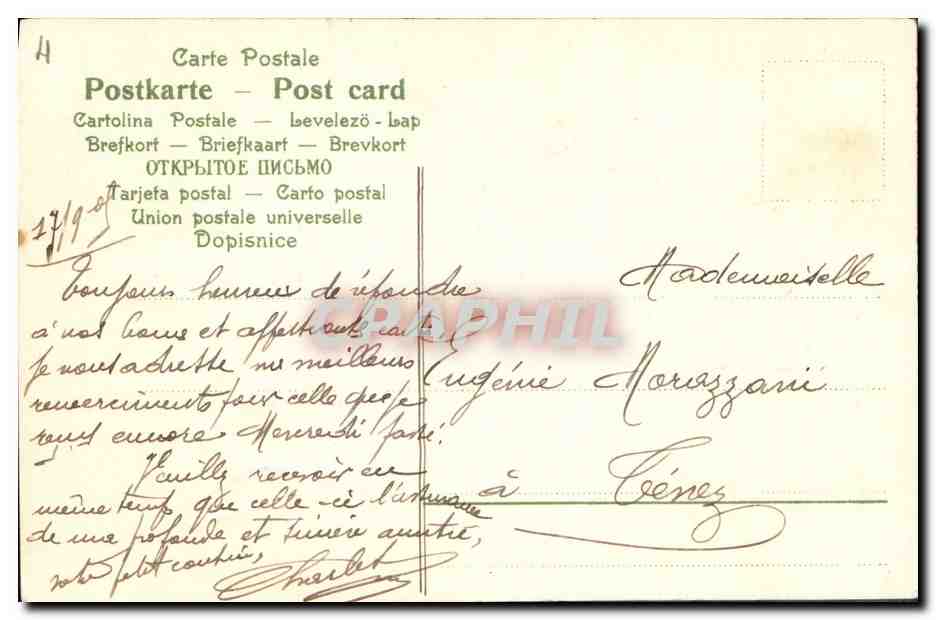 4
Carte Postale
Postkarte – Post card
Cartolina Postale — Levelezö-Lap
Brefkort — Briefkaart — Brevkort
ОТКРЫТОЕ ПИСЬМО
Tarjeta postal — Carto postal
Union postale universelle
Dopisnice
17/9 05
Toujours heureux de répondre
à vos bonnes et affectionnte carte
je vous adresse mes meilleurs
remerciments pour celle que je
reçus encore Mercredi passé.
Veuillez recevoir en
même temps que celle-ci l'assurance
de ma profonde et sincère amitié,
votre petit cousin,
Charlet
Mademoiselle
Eugénie Morazzani
à Ténez
CPAPHIL